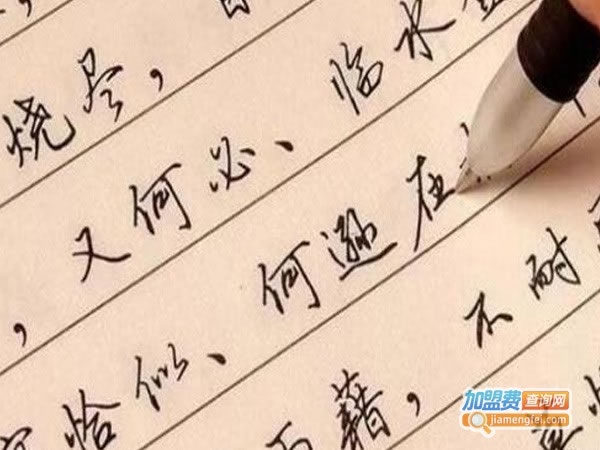 烧尽，
，又何必、临水
恰似、何遜在
藉，不耐
加盟费查询网
jiamengfei.com